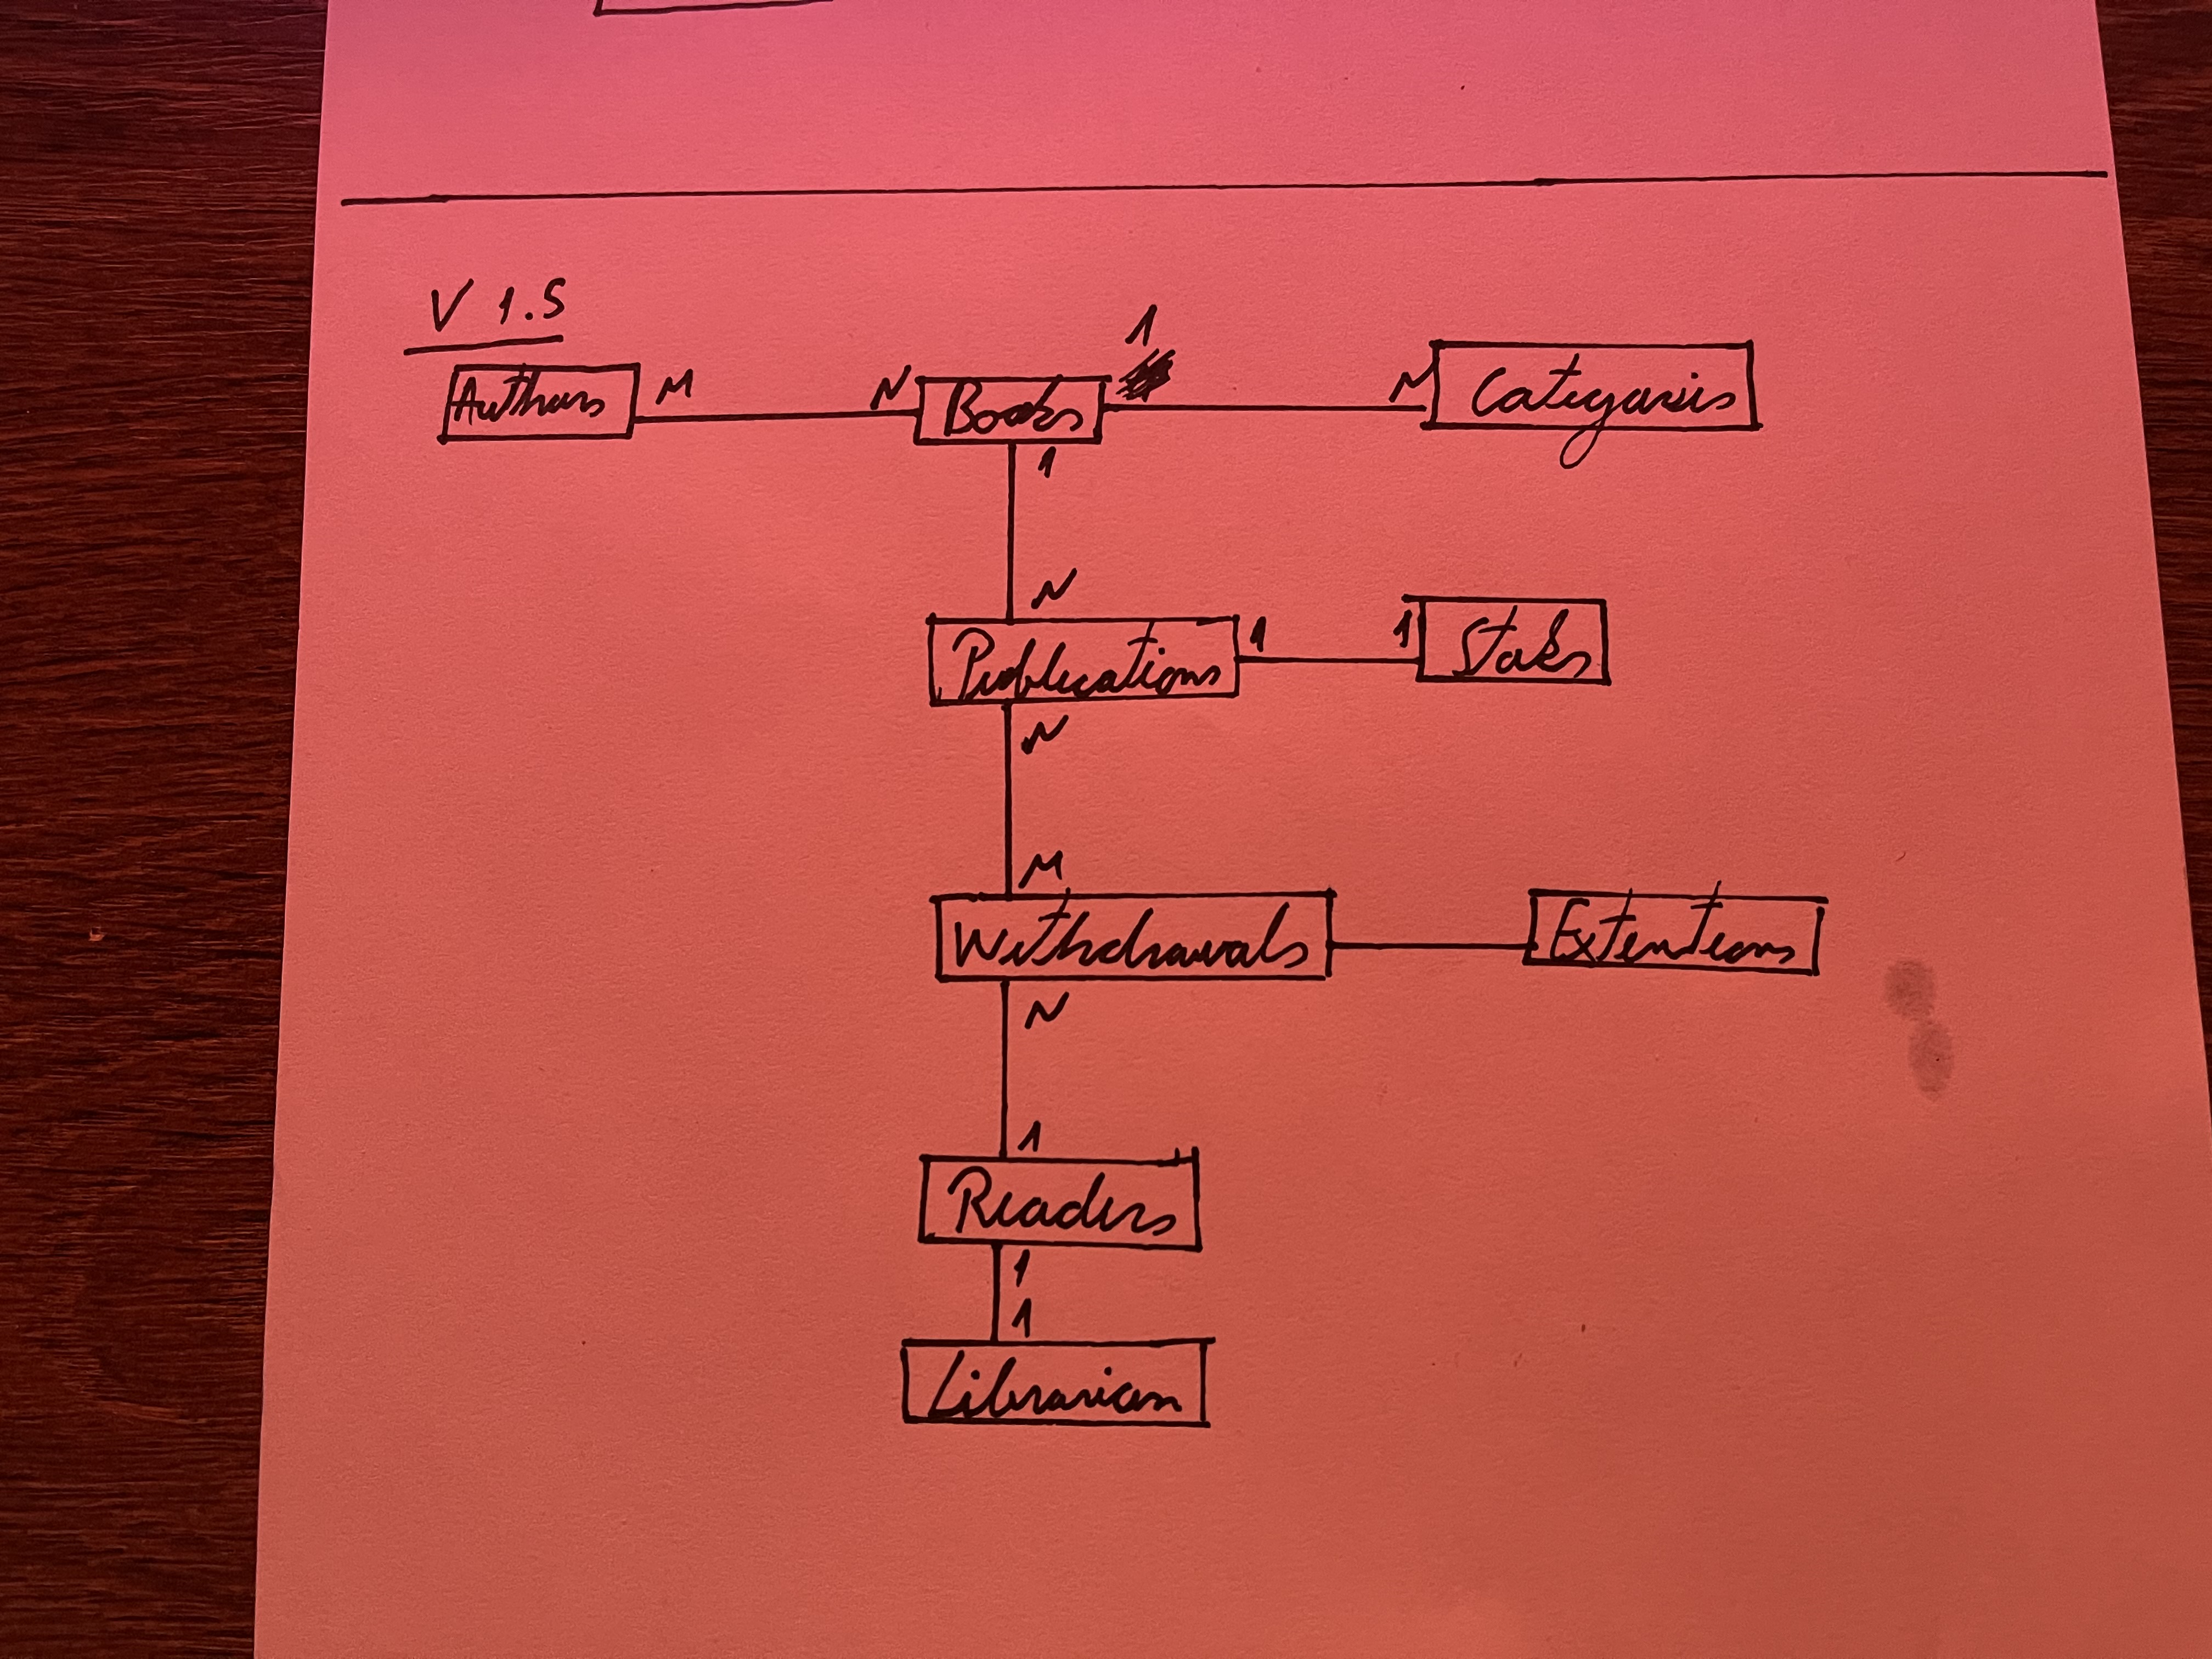 V 1.5
Authors M N Books 1 N Categories
1
N
Publications 1 1 Stoks
N
M
Withdrawals Extentions
N
1
Readers
1
1
Librarian